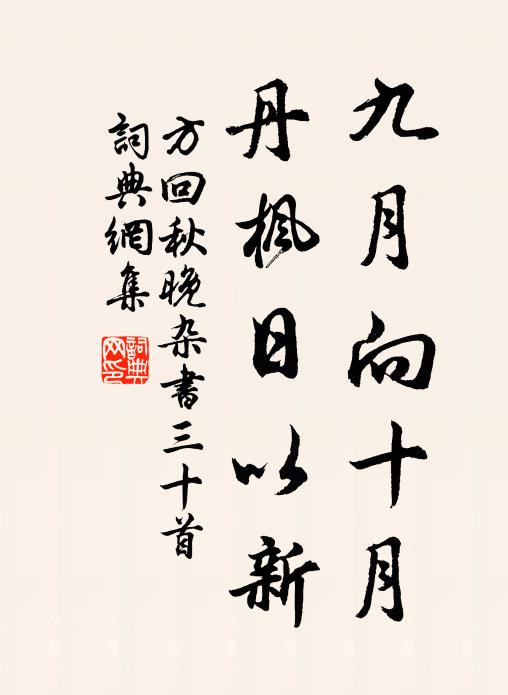 九月向十月
丹枫日以新
方回秋晚杂書三十首
詞典網集
詞典网印